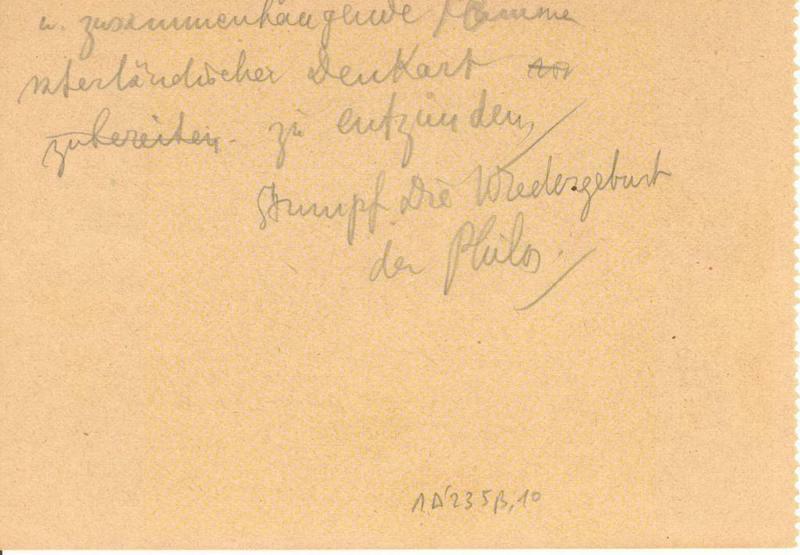 u. zusammenhängende Flamme
vaterländischer Denkart
zubereiten. zu entzünden,
Stumpf. Die Wiedergeburt
der Philos.
1 A' 235 β, 10